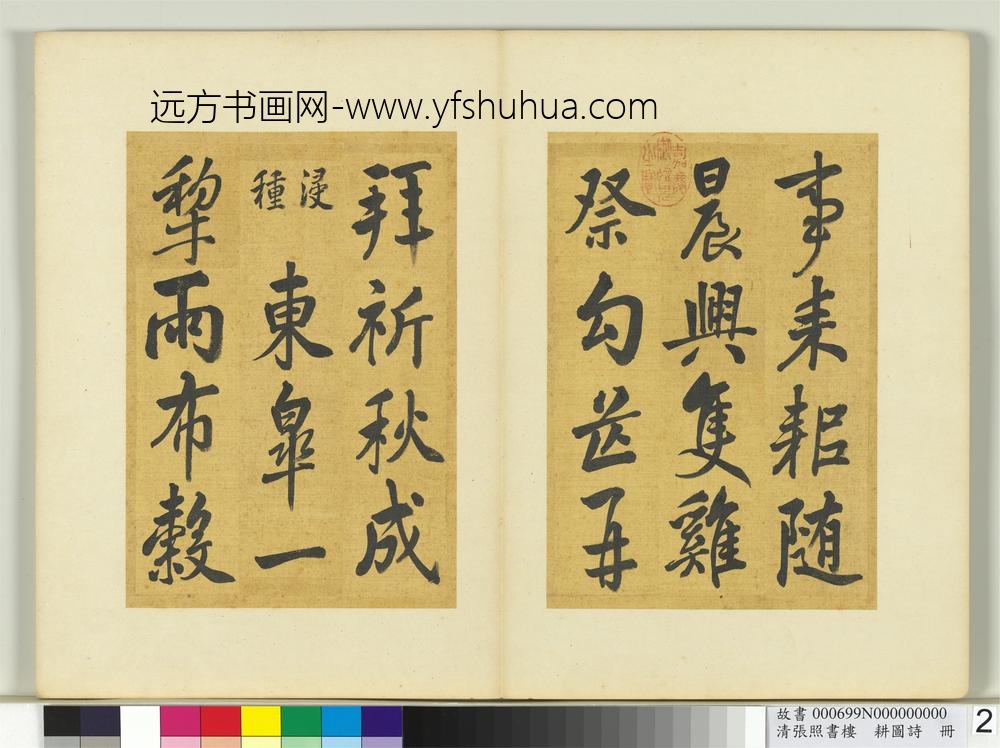 远方书画网-www.yfshuhua.com
事耒耜随
晨興隻雞
祭勾芒再
拜祈秋成
浸種
東皐一
犂雨布穀
故書 000699N000000000
清張照書樓 耕圖詩 冊
2